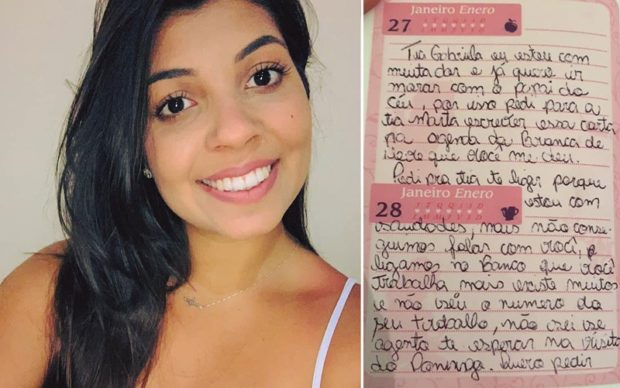 Janeiro Enero
27
Tia Gabriela eu estou com
muita dor e já quero ir
morar com o papai do
céu, por isso pedi para a
tia Marta escrever essa carta
na agenda da Branca de
Neve que você me deu.
Pedi pra tia te ligar porque
Janeiro Enero
28
estou com
saudades, mais não conse-
guimos falar com você,
ligamos no Banco que você
trabalha mais existe muitos
e não seu o numero do
seu trabalho, não sei se
agento te esperar na visita
do Domingo. Quero pedir